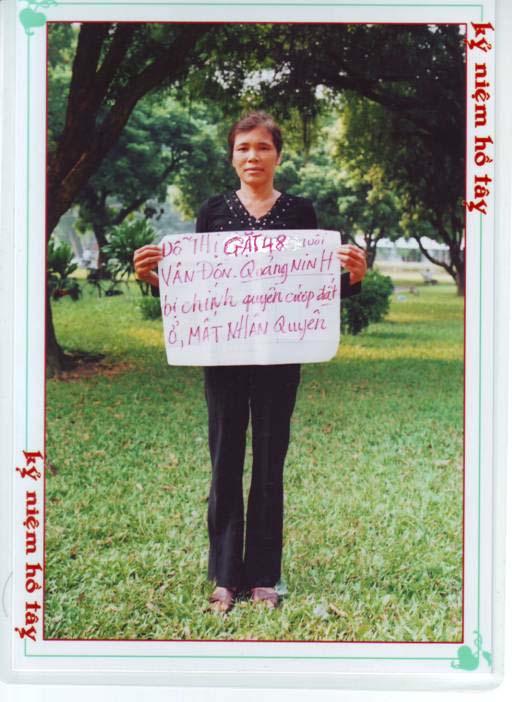 kỷ niệm hồ tây
Đỗ THị GẤT 48 tuổi
VÂN ĐỒN. QuảngNINH
bị chính quyền cướp đất
ở, MẤT NHÂN Quyền
kỷ niệm hồ tây